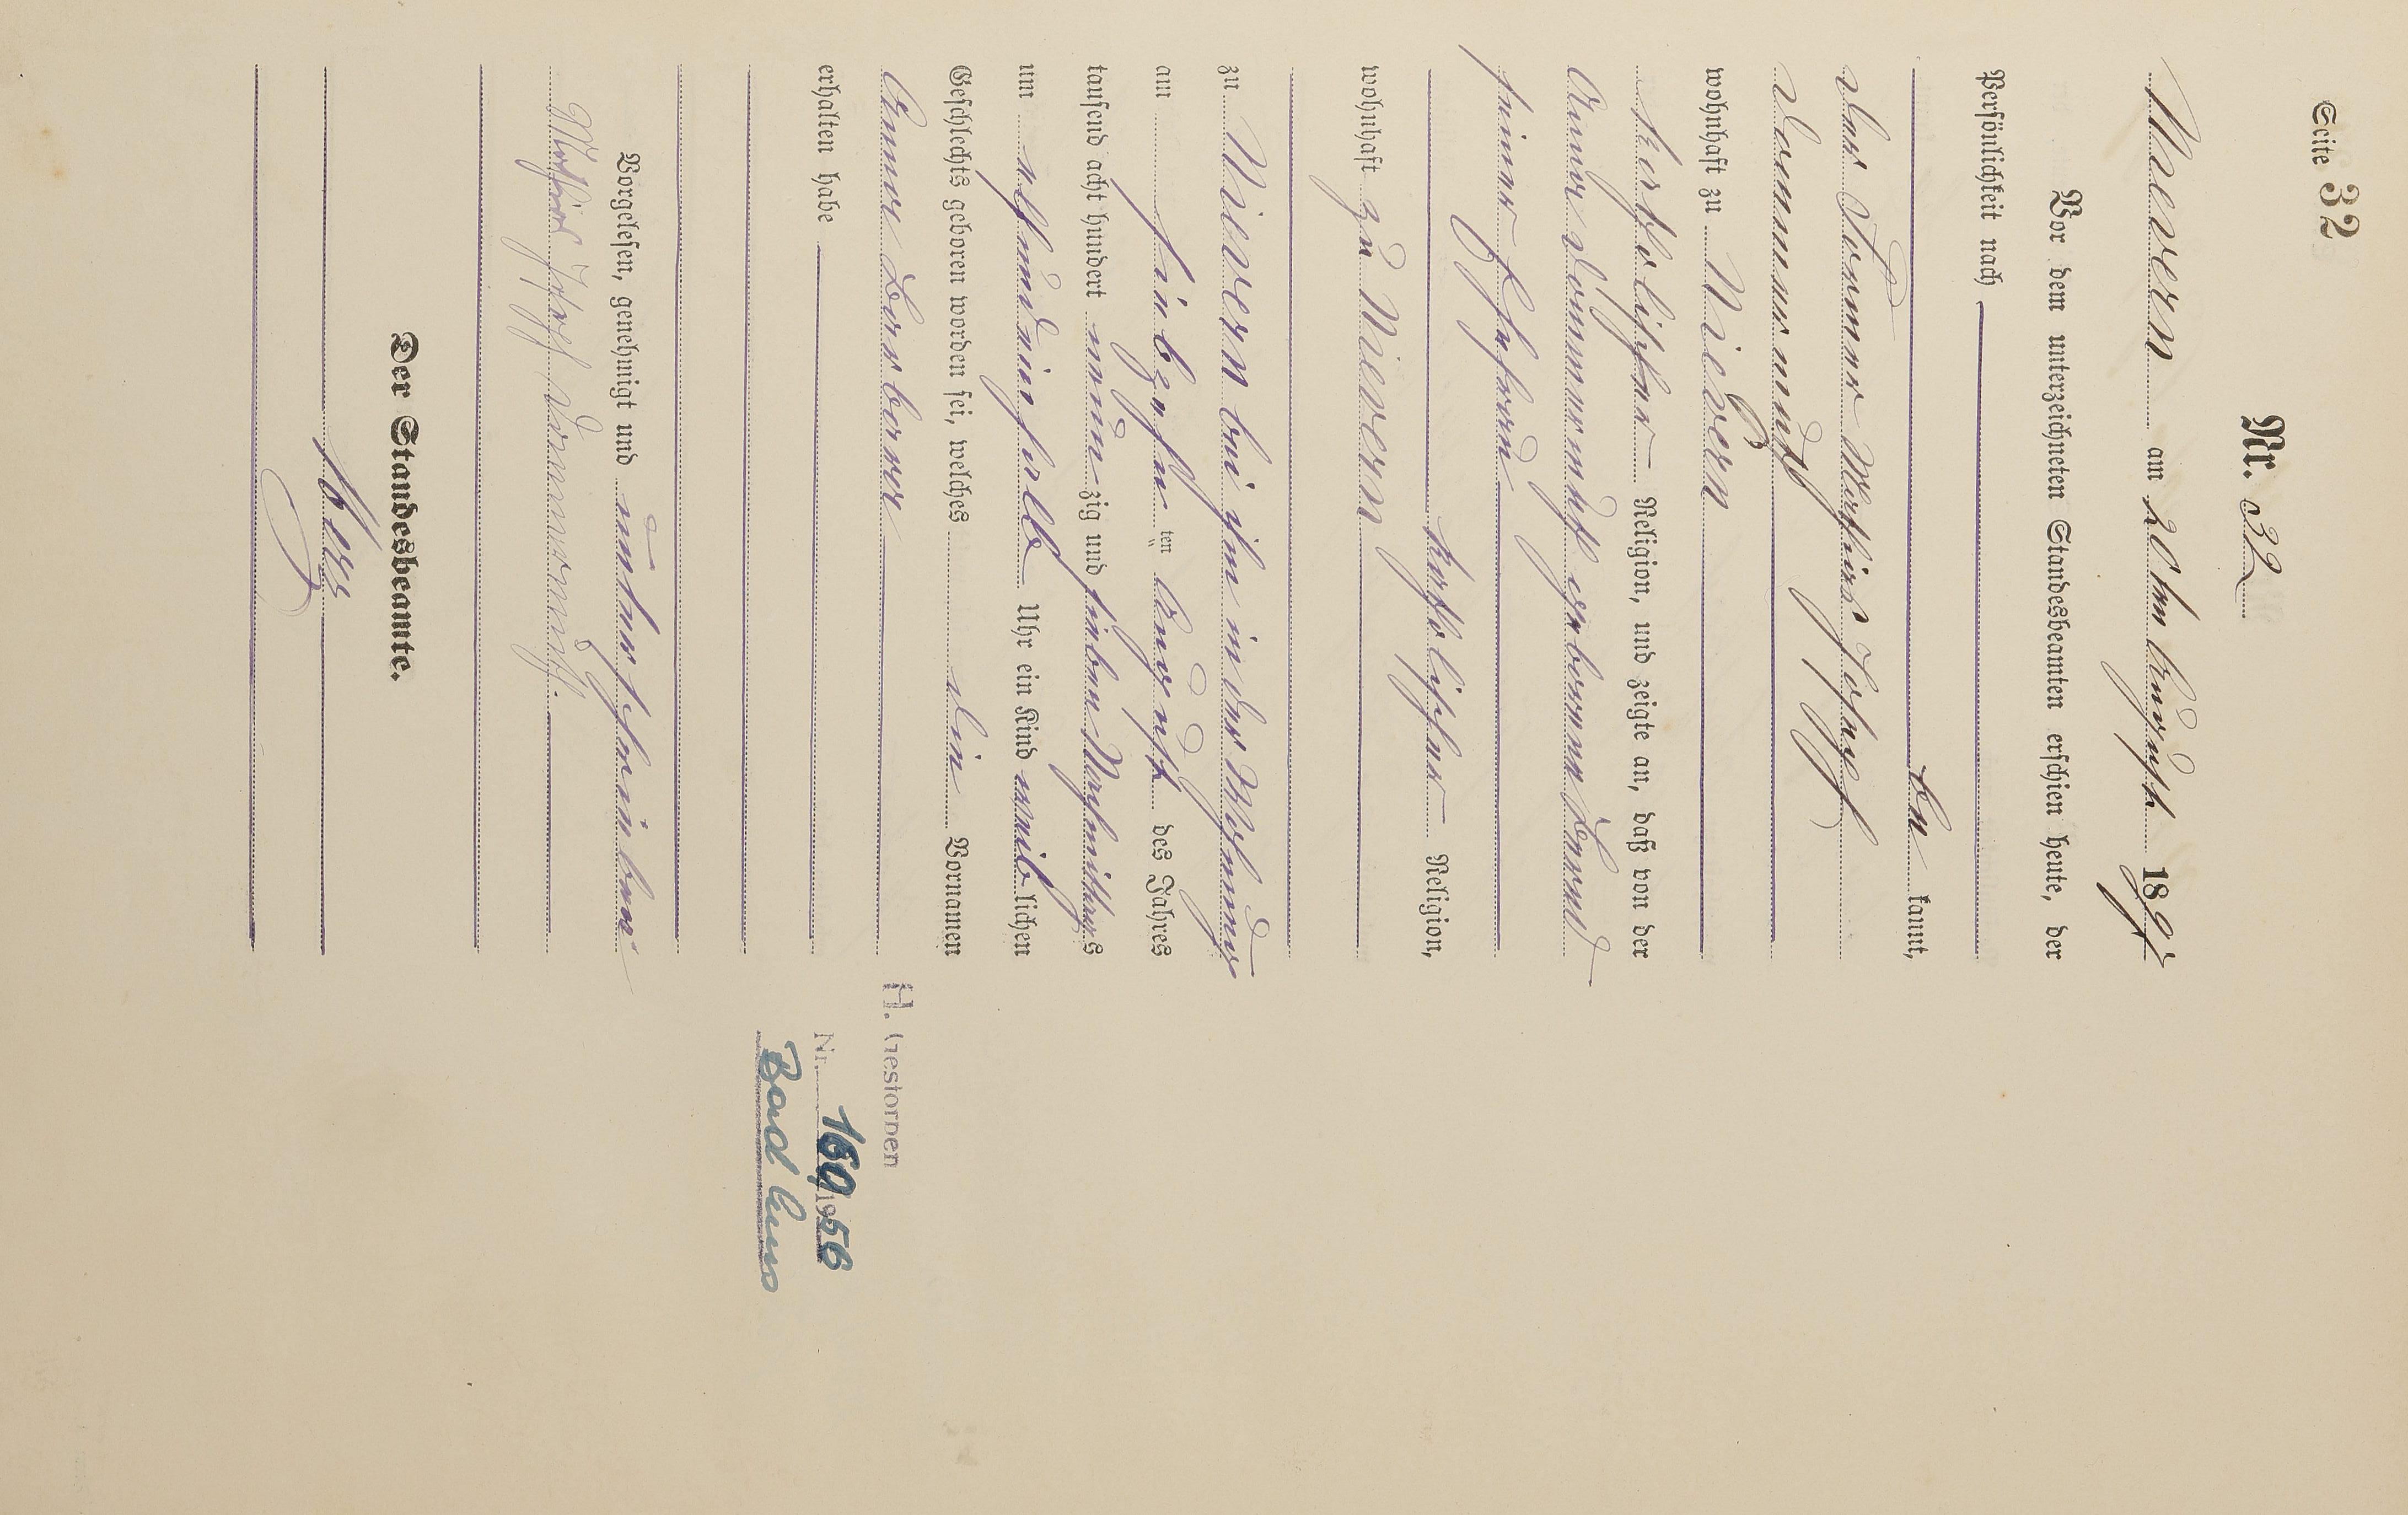 Seite 32
Nr. 32
Nievern am 20ten August 1897
Vor dem unterzeichneten Standesbeamten erschien heute, der
Persönlichkeit nach
be kannt,
der Mathias Josef
wohnhaft zu Nievern
katholischer Religion, und zeigte an, daß von der
Anna geborene
seiner Ehefrau
katholischer Religion,
wohnhaft zu Nievern
zu Nievern bei ihm in der Wohnung
am siebzehn ten August des Jahres
tausend acht hundert neun zig und sieben Nachmittags
um elfundeinhalb Uhr ein Kind weib lichen
Geschlechts geboren worden sei, welches die Vornamen
Anna Barbara
erhalten habe
Vorgelesen, genehmigt und unterschrieben
Mathias Josef
Der Standesbeamte.
H. Gestorben
Nr. 160/1956
Bad Ems